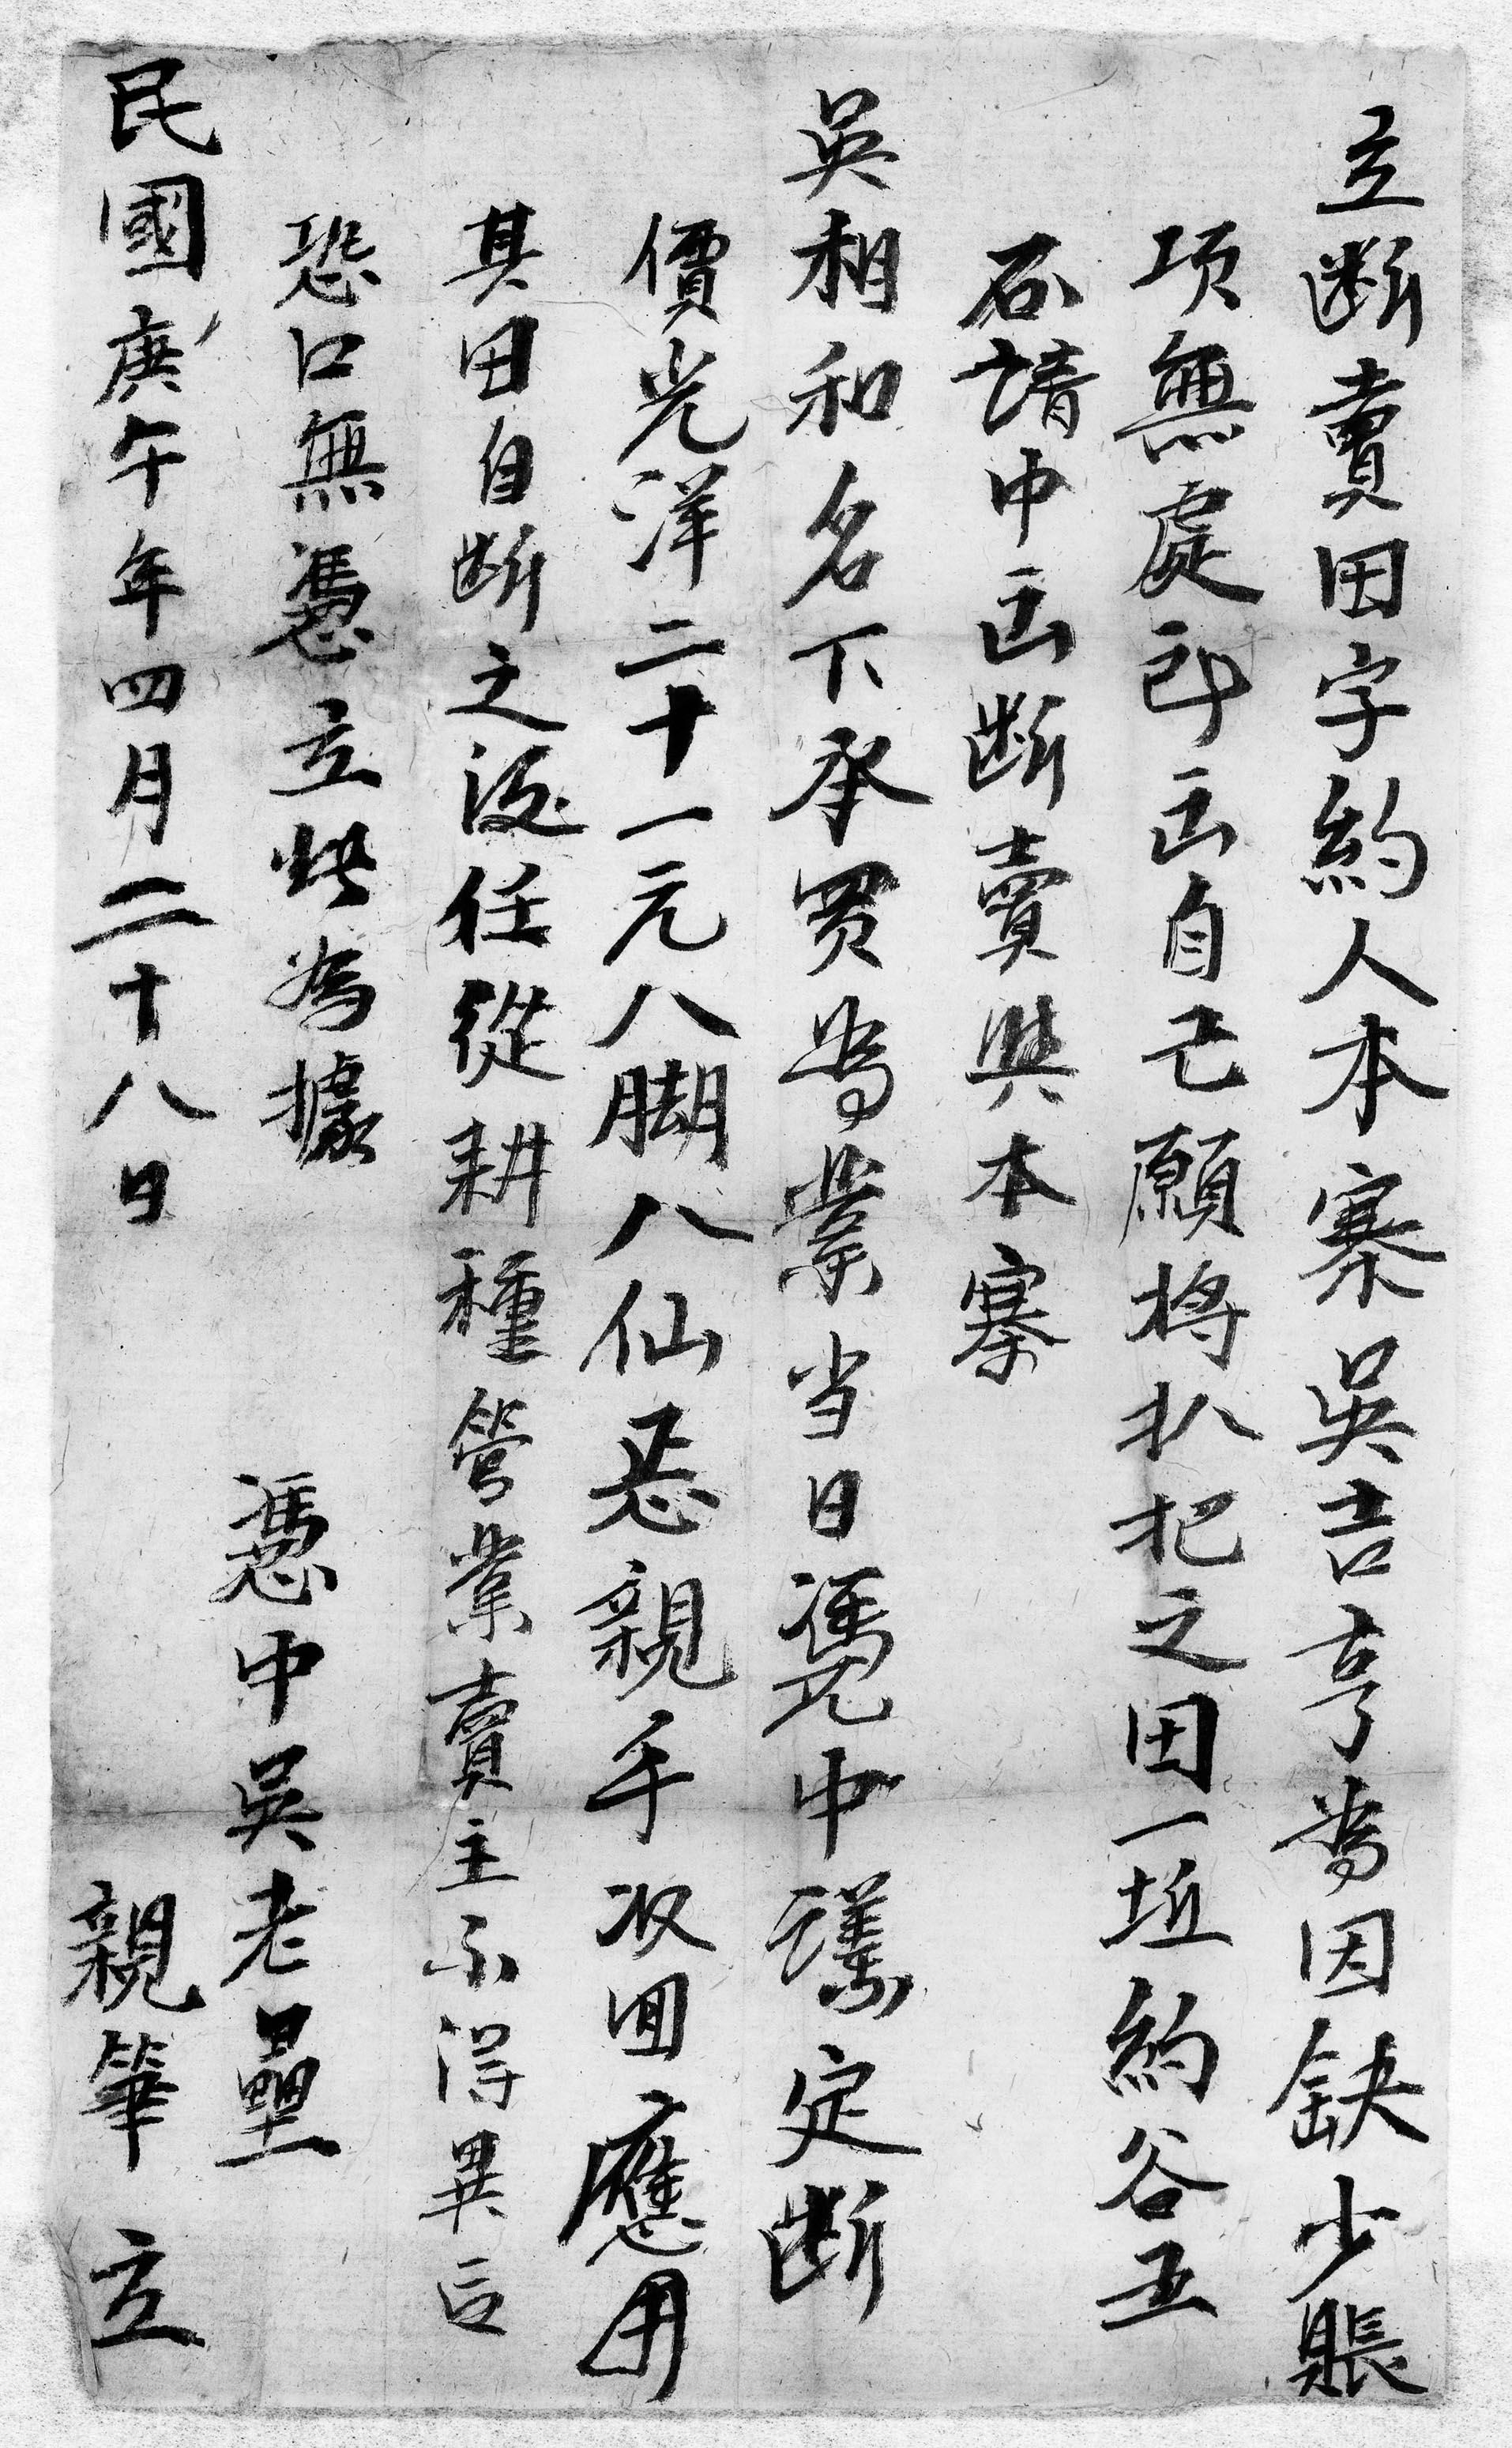 立断賣田字約人本寨吳吉亨為因缺少賬
項無處即正自己願將扒把之田一坵約谷五
石請中正断賣與本寨
吳相和名下承買為業当日凴中議定断
價光洋二十一元八脚八仙是親手收回應用
其田自断之後任從耕種管業賣主不得異言
恐口無憑立此為據
憑中吳老壘
民國庚午年四月二十八日 親筆立